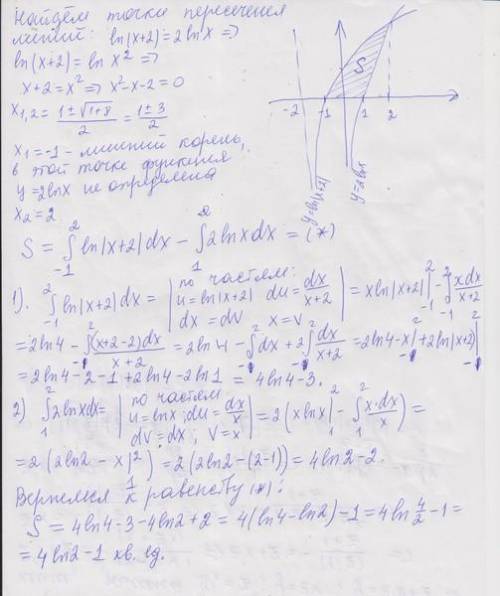 Найдём точки пересечения
линий: ln(x+2)=2lnx =>
ln(x+2)=ln x² =>
x+2=x² => x²-x-2=0
x₁,₂ = (1±√(1+8))/2 = (1±3)/2
x₁=-1 - лишний корень,
в этой точке функция
y=2lnx не определена
x₂=2
S
-2 -1 1 2
y=ln(x+2)
y=2lnx
S = ∫₋₁² ln|x+2|dx - ∫₁² 2lnxdx = (*)
1). ∫₋₁² ln|x+2|dx = | по частям: u=ln|x+2| du=dx/(x+2) dx=dv x=v | = xln|x+2| |₋₁² - ∫₋₁² xdx/(x+2)
= 2ln4 - ∫₋₁² (x+2-2)dx/(x+2) = 2ln4 - ∫₋₁² dx + 2∫₋₁² dx/(x+2) = 2ln4 - x|₋₁² + 2ln|x+2||₋₁²
= 2ln4-2-1+2ln4-2ln1 = 4ln4-3.
2) ∫₁² 2lnxdx = | по частям u=lnx; du=dx/x dv=dx; v=x | = 2(xlnx|₁² - ∫₁² x·dx/x) =
= 2(2ln2 - x|₁²) = 2(2ln2-(2-1)) = 4ln2-2.
Вернёмся к равенству (*):
S = 4ln4-3-4ln2+2 = 4(ln4-ln2)-1 = 4ln 4/2 -1 =
= 4ln2-1 кв. ед.